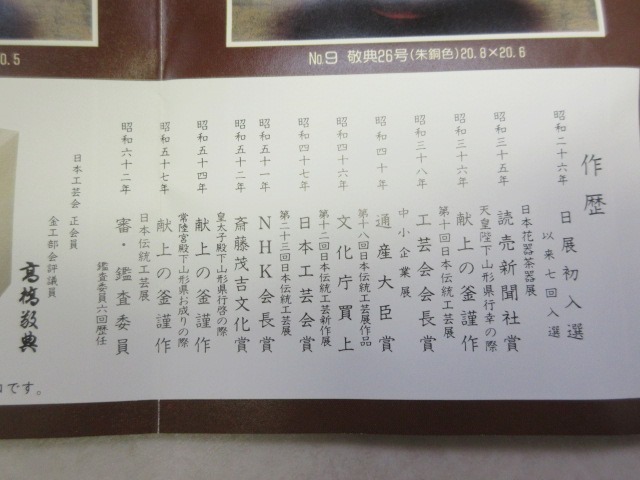 0.5
No.9 敬典26号(朱銅色)20.8×20.6
作歴
昭和二十六年 日展初入選
以来七回入選
日本花器茶器展
昭和三十五年 読売新聞社賞
天皇陛下山形県行幸の際
昭和三十六年 献上の釜謹作
第十回日本伝統工芸展
昭和三十八年 工芸会会長賞
中小企業展
昭和四十年 通産大臣賞
第十八回日本伝統工芸展作品
昭和四十六年 文化庁買上
第十二回日本伝統工芸新作展
昭和四十七年 日本工芸会賞
第二十三回日本伝統工芸展
昭和五十一年 NHK会長賞
昭和五十二年 斎藤茂吉文化賞
皇太子殿下山形県行啓の際
昭和五十四年 献上の釜謹作
常陸宮殿下山形県お成りの際
昭和五十七年 献上の釜謹作
日本伝統工芸展
昭和六十二年 審・鑑査委員
鑑査委員六回歴任
日本工芸会 正会員
金工部会評議員
高橋敬典
です。